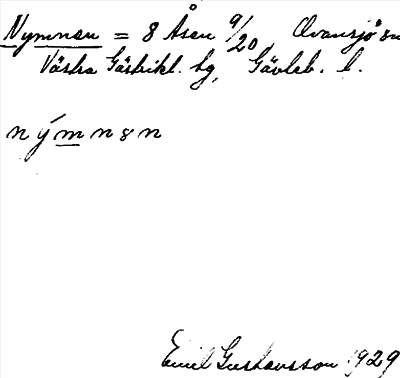 Nymnan = 8 Åsen 9/20 Ovansjö sn
Västra Gästrikl. hg, Gävleb. l.
n ý m n 8 n
Emil Gustavsson 1929